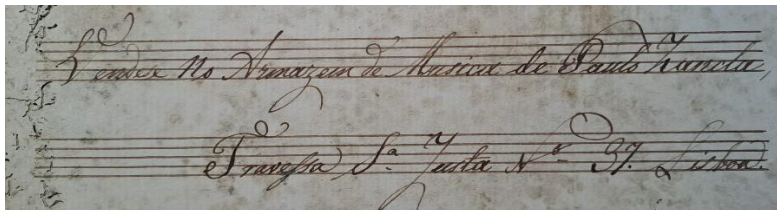 Vendese no Armazem de Musica de Paulo Zancla,
Travessa S.ª Justa N.º 37. Lisboa.